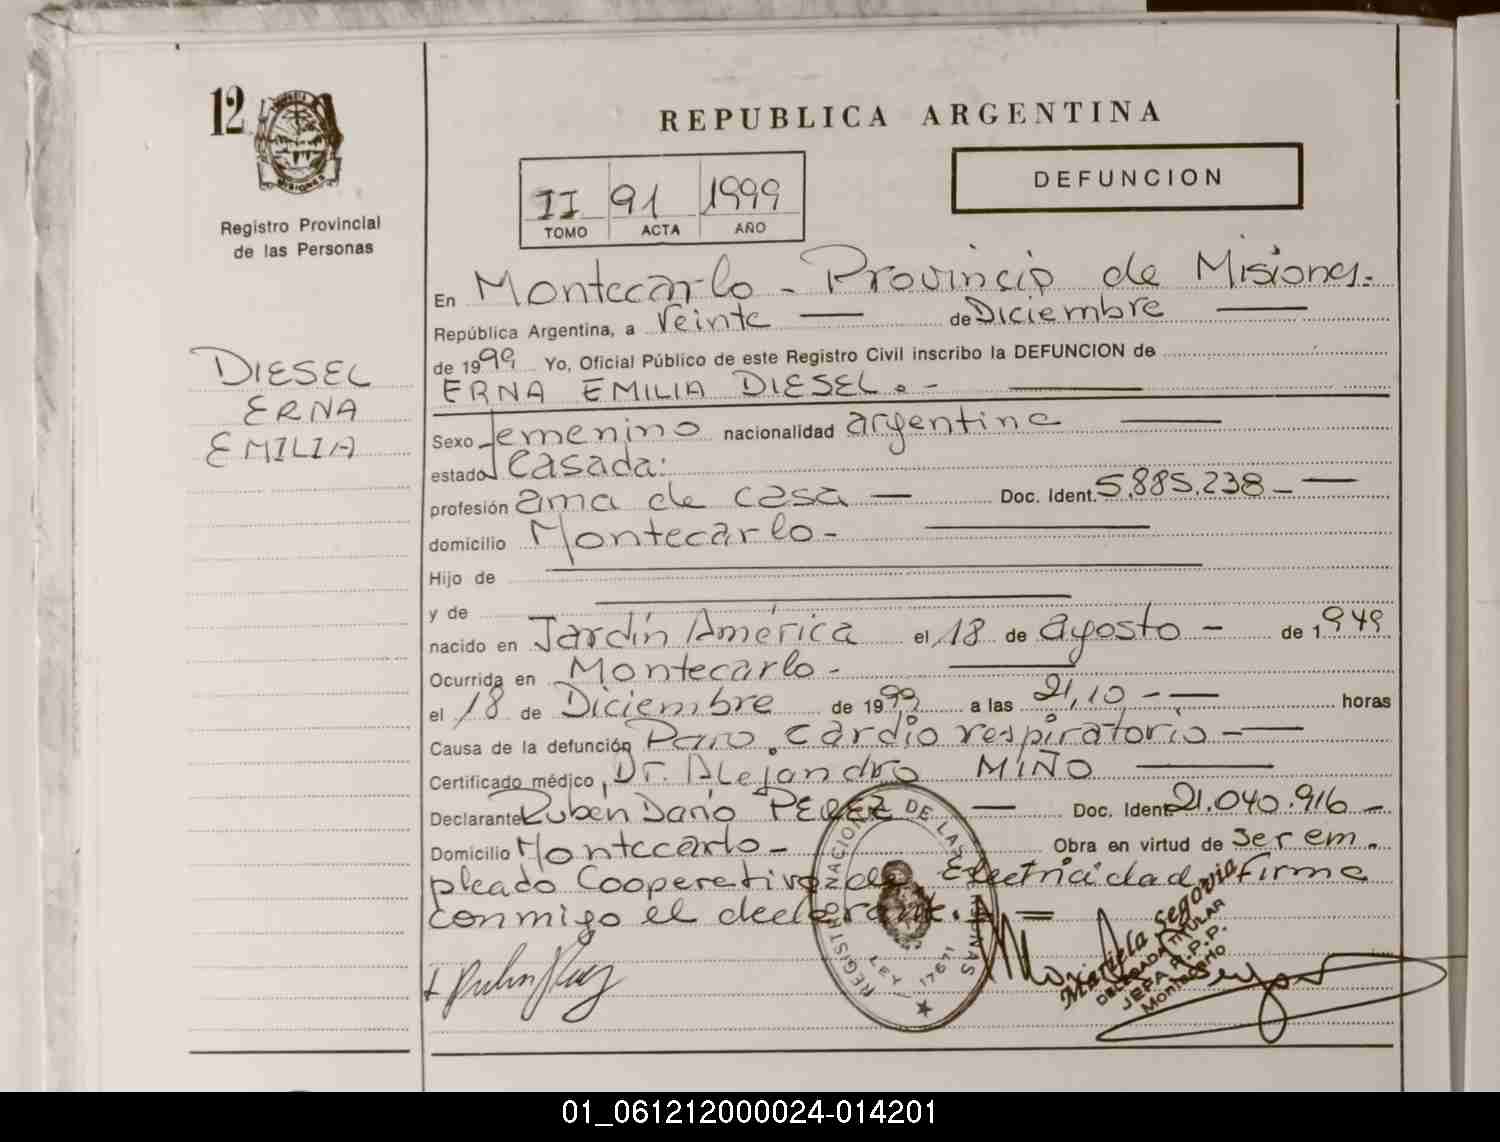 12
MISIONES
Registro Provincial
de las Personas
DIESEL
ERNA
EMILIA
REPUBLICA ARGENTINA
II 91 1999
TOMO ACTA AÑO
DEFUNCION
En Montecarlo - Provincia de Misiones.-
República Argentina, a Veinte — de Diciembre —
de 1999 Yo, Oficial Público de este Registro Civil inscribo la DEFUNCION de
ERNA EMILIA DIESEL.- —
Sexo femenino nacionalidad argentina —
estado Casada:
profesión ama de casa — Doc. Ident. 5.885.238.- —
domicilio Montecarlo- —
Hijo de —
y de —
nacido en Jardín América el 18 de agosto - de 1949
Ocurrida en Montecarlo- —
el 18 de Diciembre de 1999 a las 21,10 - — horas
Causa de la defunción Paro cardio respiratorio - —
Certificado médico, Dr. Alejandro MIÑO —
Declarante Ruben Dario PEREZ — Doc. Ident. 21.040.916 -
Domicilio Montecarlo- Obra en virtud de ser em-
pleado Cooperativa de Electricidad firma
conmigo el declarante.- —
REGISTRO NACIONAL DE LAS PERSONAS
LEY 17671
Mariela Segovia
DELEGADA TITULAR
JEFA R.P.P.
Montecarlo
01_061212000024-014201